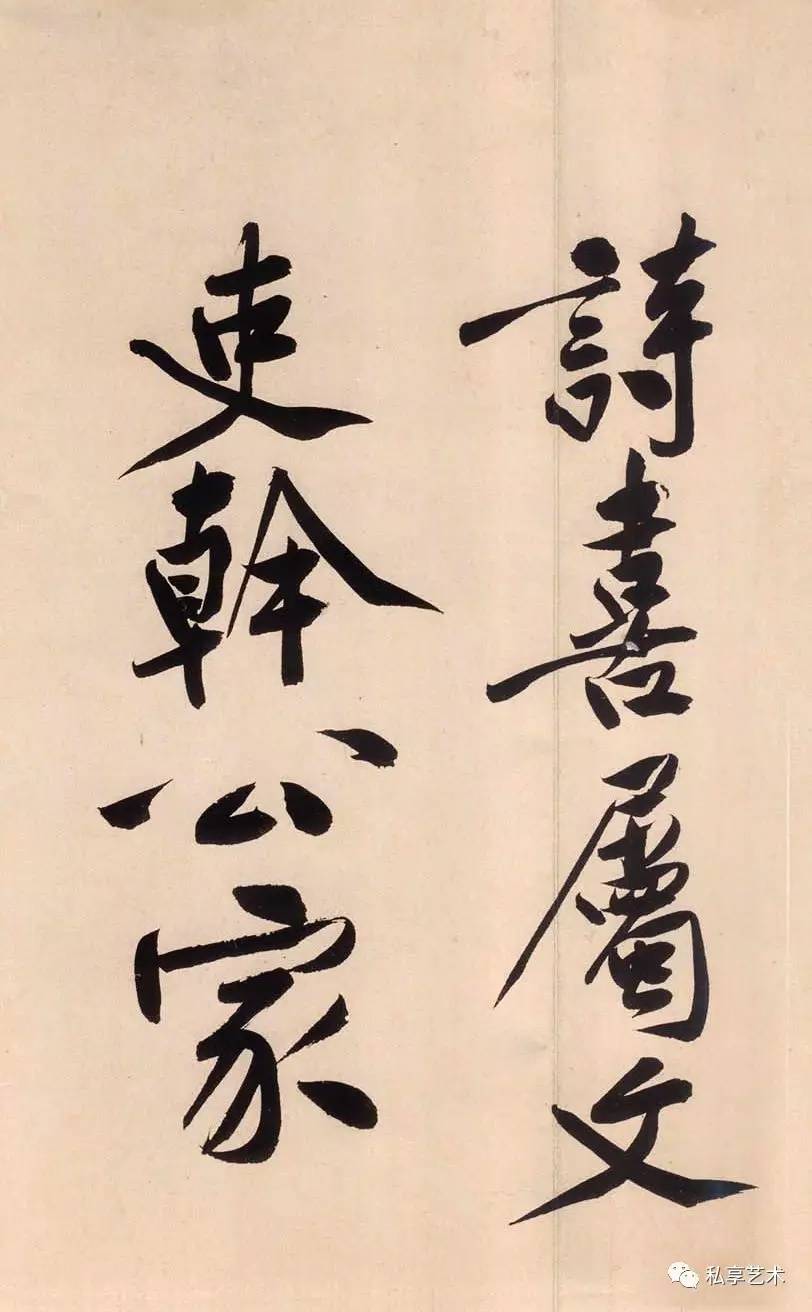 詩喜屬文
吏幹公家
私享艺术